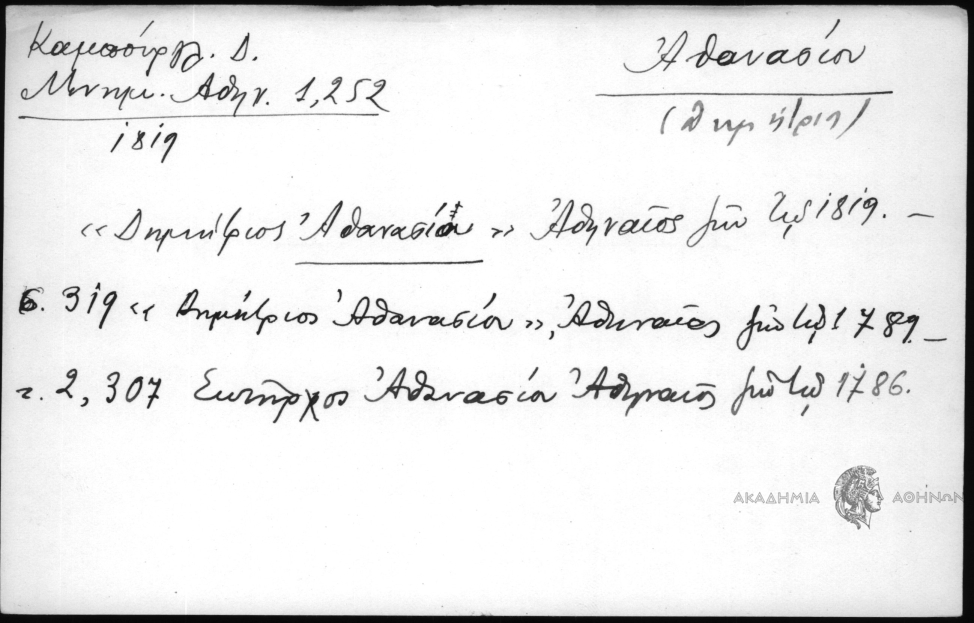 Καμπούργλ. Δ.
Μνημ. Αθην. 1,252
1819
Ἀθανασίου
(Δημήτριη)
«Δημήτριος Ἀθανασίου» Ἀθηναῖος ζῶν τῷ 1819. —
σ. 319 «Δημήτριος Ἀθανασίου», Ἀθηναῖος ζῶν τῷ 1789. —
τ. 2, 307 Σωτήρχος Ἀθανασίου Ἀθηναῖος ζῶν τῷ 1786.
ΑΚΑΔΗΜΙΑ ΑΘΗΝΩΝ